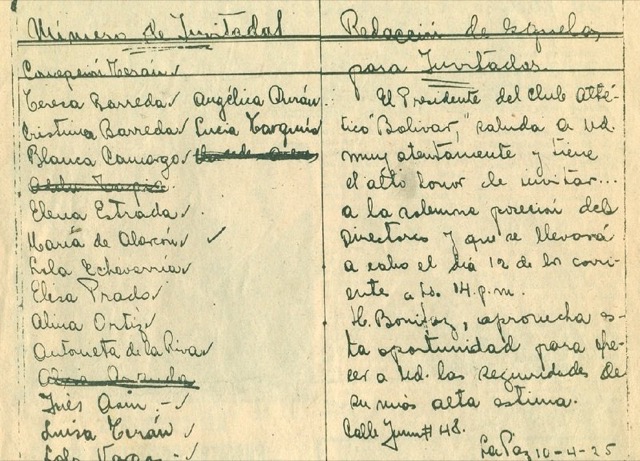 Número de Invitadas
Concepción Terán
Teresa Barreda
Cristina Barreda
Blanca Camargo
Elena Estrada
María de Alarcón
Lola Echevarría
Elesa Prado
Alina Ortiz
Antonieta de la Riva
Inés Asin
Luisa Terán
Lola Vargas
Angélica Durán
Lucía Tarquino
Redacción de esquelas
para Invitadas
El Presidente del Club Atlé-
tico "Bolivar," saluda a Ud.
muy atentamente y tiene
el alto honor de invitar...
a la solemne posesión del
Directorio y que se llevará
a cabo el día 12 de los corri-
ente a Hs. 14 p.m.
H. Bonifaz, aprovecha es-
ta oportunidad para ofre-
cer a Ud. las seguridades de
su más alta estima.
Calle Junin # 48.
La Paz 10-4-25